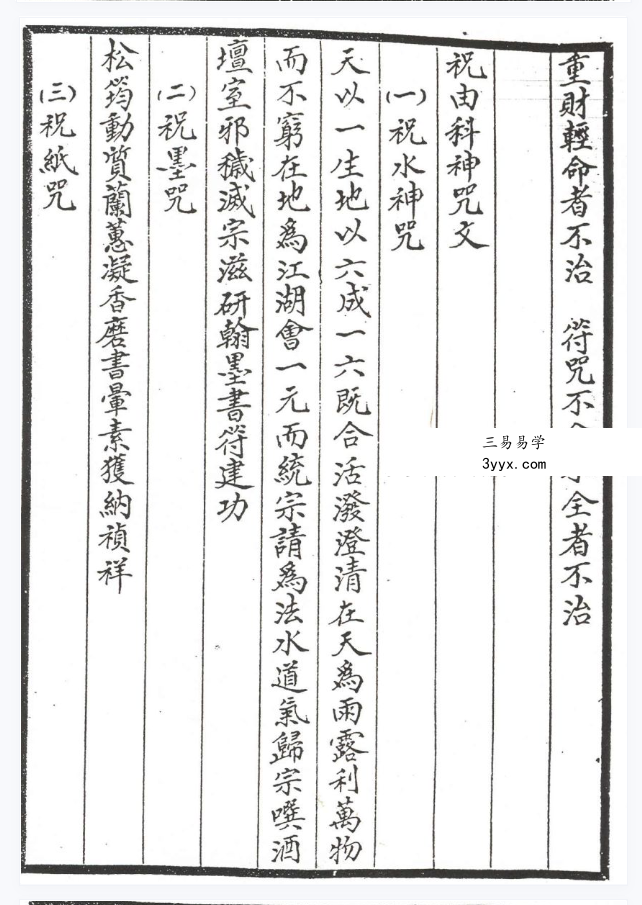 重財輕命者不治　符咒不全者不治
祝由科神咒文
(一)祝水神咒
天以一生地以六成一六既合活潑澄清在天為雨露利萬物
而不窮在地為江湖會一元而統宗請為法水道氣歸宗噀酒
壇室邪穢滅宗滋研翰墨書符建功
(二)祝墨咒
松筠動質蘭蕙凝香磨書暈素獲納禎祥
(三)祝紙咒
三易易学
3yyx.com